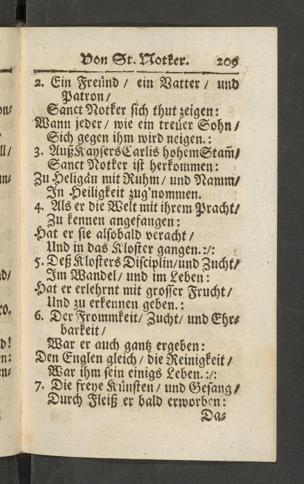 Von St. Notker. 209
2. Ein Freünd / ein Vatter / und
Patron /
Sanct Notker sich thut zeigen:
Wann jeder / wie ein treüer Sohn /
Sich gegen ihm wird neigen.:
3. Auß Kaysers Carlis hohem Stam̃ /
Sanct Notker ist herkommen:
Zu Heligäu mit Ruhm / und Namm /
In Heiligkeit zug'nommen.
4. Als er die Welt mit ihrem Pracht /
Zu kennen angefangen:
Hat er sie alsobald veracht /
Und in das Kloster gangen.:/:
5. Deß Klosters Disciplin / und Zucht /
Im Wandel / und im Leben:
Hat er erlehrnt mit grosser Frucht /
Und zu erkennen geben.:
6. Der Frommkeit / Zucht / und Ehr-
barkeit /
War er auch gantz ergeben:
Den Englen gleich / die Reinigkeit /
War ihm sein einigs Leben.:/:
7. Die freye Künsten / und Gesang /
Durch Fleiß er bald erworben:
Da-